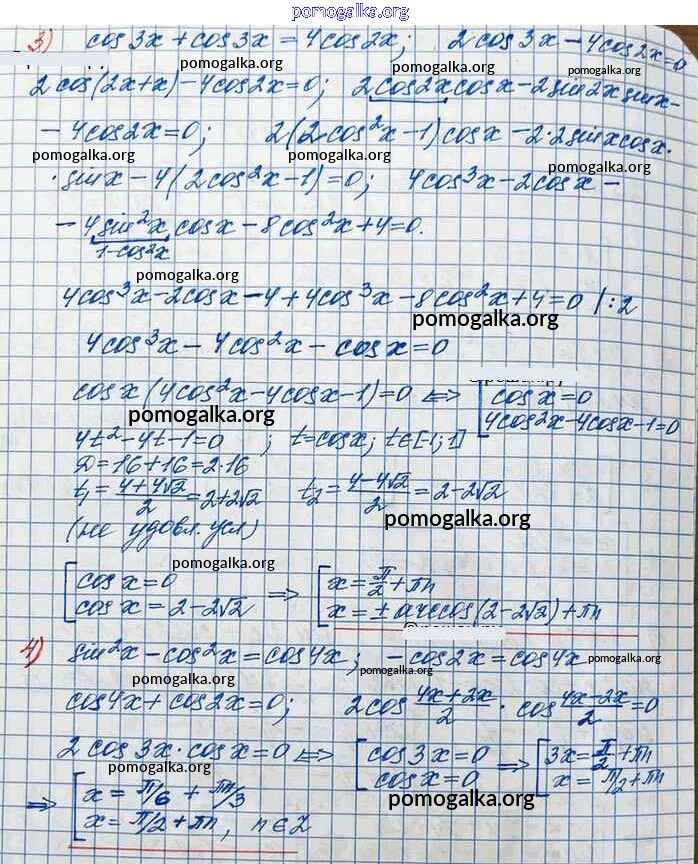 pomogalka.org
3) cos3x + cos3x = 4cos2x; 2cos3x - 4cos2x = 0
pomogalka.org pomogalka.org pomogalka.org
2cos(2x+x) - 4cos2x = 0; 2cos2x cosx - 2sin2x sinx -
- 4cos2x = 0; 2(2cos²x - 1)cosx - 2·2sinxcosx·
pomogalka.org pomogalka.org pomogalka.org
· sinx - 4(2cos²x - 1) = 0; 4cos³x - 2cosx -
- 4sin²x cosx - 8cos²x + 4 = 0.
1-cos²x
pomogalka.org
4cos³x - 2cosx - 4 + 4cos³x - 8cos²x + 4 = 0 | :2
pomogalka.org
4cos³x - 4cos²x - cosx = 0
cosx(4cos²x - 4cosx - 1) = 0 <=> [cosx = 0
4cos2x - 4cosx - 1 = 0
pomogalka.org
4t² - 4t - 1 = 0 ; t = cosx; t ∈ [-1; 1]
D = 16 + 16 = 2·16
t₁ = (4+4√2)/2 = 2+2√2 t₂ = (4-4√2)/2 = 2-2√2
(не удовл. усл)
pomogalka.org
pomogalka.org
[cosx = 0 => [x = π/2 + πn
cosx = 2-2√2 x = ± arccos(2-2√2) + πn
4) sin²x - cos²x = cos4x; -cos2x = cos4x
pomogalka.org pomogalka.org pomogalka.org
cos4x + cos2x = 0; 2cos (4x+2x)/2 · cos (4x-2x)/2 = 0
2cos3x · cosx = 0 <=> [cos3x = 0 => [3x = π/2 + πn
cosx = 0 x = π/2 + πn
pomogalka.org
=> [x = π/6 + πn/3
pomogalka.org
x = π/2 + πn, n ∈ Z